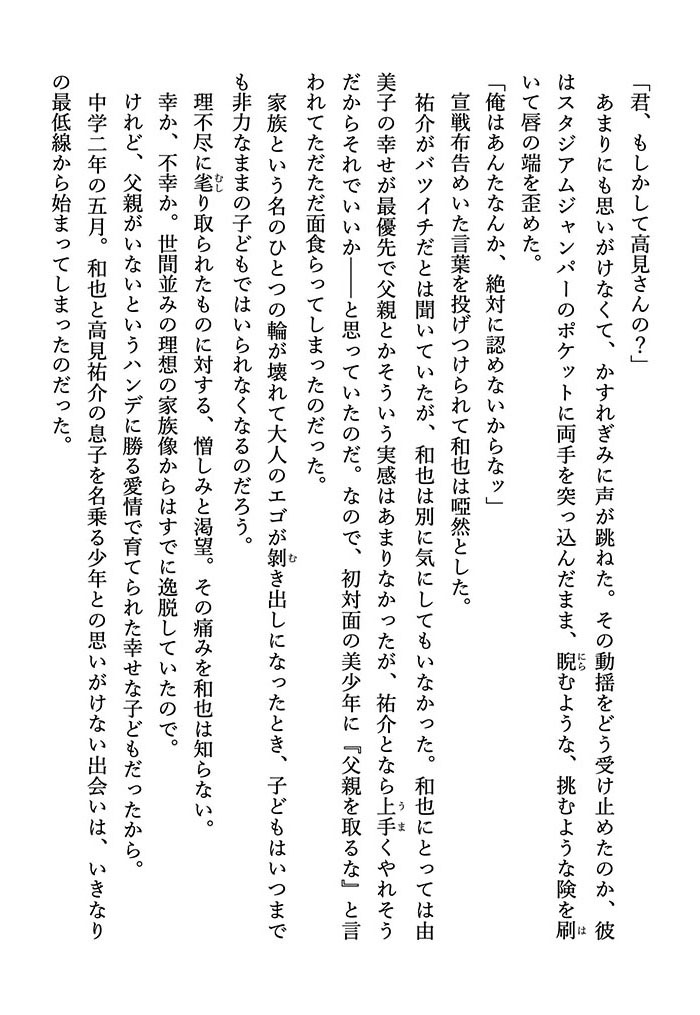 「君、もしかして高見さんの？」
　あまりにも思いがけなくて、かすれぎみに声が跳ねた。その動揺をどう受け止めたのか、彼
はスタジアムジャンパーのポケットに両手を突っ込んだまま、睨むような、挑むような険を刷
いて唇の端を歪めた。
「俺はあんたなんか、絶対に認めないからなッ」
　宣戦布告めいた言葉を投げつけられて和也は啞然とした。
　祐介がバツイチだとは聞いていたが、和也は別に気にしてもいなかった。和也にとっては由
美子の幸せが最優先で父親とかそういう実感はあまりなかったが、祐介となら上手くやれそう
だからそれでいいか――と思っていたのだ。なので、初対面の美少年に『父親を取るな』と言
われてただただ面食らってしまったのだった。
　家族という名のひとつの輪が壊れて大人のエゴが剝き出しになったとき、子どもはいつまで
も非力なままの子どもではいられなくなるのだろう。
　理不尽に毟り取られたものに対する、憎しみと渇望。その痛みを和也は知らない。
　幸か、不幸か。世間並みの理想の家族像からはすでに逸脱していたので。
　けれど、父親がいないというハンデに勝る愛情で育てられた幸せな子どもだったから。
　中学二年の五月。和也と高見祐介の息子を名乗る少年との思いがけない出会いは、いきなり
の最低線から始まってしまったのだった。